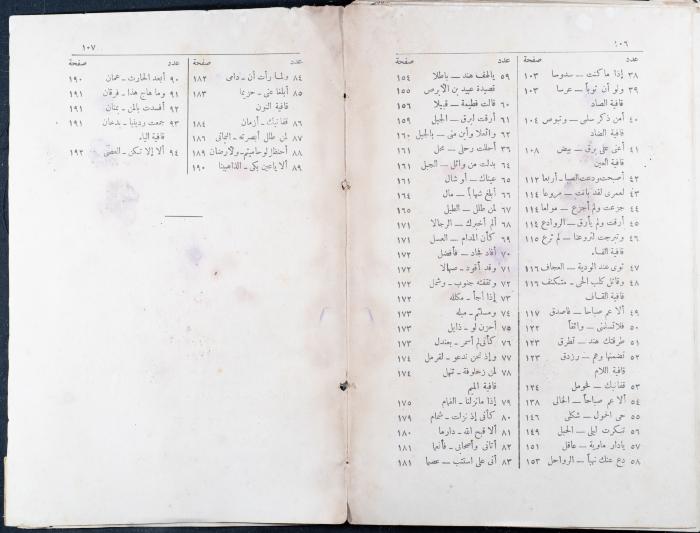 ١٠٦
عدد صفحة
٣٨ إذا ما كنت — سدوسا ١٠٣
٣٩ ولو أن نوماً — عرسا ١٠٣
قافية الصاد
٤٠ أمن ذكر سلمى — وتبوص ١٠٤
قافية الضاد
٤١ أعنى على برق — بيض ١٠٨
قافية العين
٤٢ أصبحت ودعت الصبا - أربعا ١١٢
٤٣ لعمرى لقد بانت — مروعا ١١٤
٤٤ جزعت ولم أجزع — مولعا ١١٤
٤٥ أرقت ولم يأرق — الروادع ١١٤
٤٦ وتبرجت لتروعنا — لم ترع ١١٥
قافية الفاء
٤٧ ثوى عند الودية — العجاف ١١٦
٤٨ وقاتل كلب الحى - متكنف ١١٦
قافية القاف
٤٩ ألا عم صباحا — فاصدق ١١٧
٥٠ فلا تسلمنى — واثقاً ١٢٢
٥١ طرقتك هند — تطرق ١٢٣
٥٢ تضمنها وهم — رزدق ١٢٣
قافية اللام
٥٣ قفا نبك — فحومل ١٢٤
٥٤ ألا عم صباحاً — الخالى ١٣٨
٥٥ حى الحمول — شكلى ١٤٦
٥٦ تنكرت ليلى — الحبل ١٤٩
٥٧ يادار ماوية — عاقل ١٥١
٥٨ دع عنك نهباً — الرواحل ١٥٣
عدد صفحة
٥٩ يالهف هند — باطلا ١٥٤
قصيدة عبيد بن الأبرص ١٥٥
٦٠ قالت فطيمة — قبيلا ١٥٦
٦١ أرقت لبرق — الجبل ١٥٩
٦٢ وا ثعلا وأين منى — بالجبل ١٦٠
٣٦ أحللت رحلى — محل ١٦١
٦٤ بدلت من وائل — الجبل ١٦١
٦٥ عيناك — أو شال ١٦١
٦٦ أبلغ شهاباً — مال ١٦٤
٦٧ لمن طلل — الطيل ١٦٥
٦٨ ألم أخبرك — الرجالا ١٧١
٦٩ كأن المدام — العسل ١٧١
٧٠ أفاد فجاد — فأفضل ١٧٢
٧١ وقد أقود - صهالا ١٧٢
٧٢ وتقفته جنوب — وشمل ١٧٢
٧٣ إذا أجأ - مكلله ١٧٢
٧٤ ومستلئم - ميله ١٧٣
٧٥ أحزن لو - ذايل ١٧٣
٧٦ كأنى لم أسمر - بعندل ١٧٣
٧٧ وإذ نحن ندعو - لقرمل ١٧٤
٧٨ لمن زحلوفة - تنهل ١٧٤
قافية الميم
٧٩ إذا ما نزلنا - الفهام ١٧٥
٨٠ كأنى إذ نزلت - شمام ١٧٩
٨١ ألا قبح الله - دارما ١٨٠
٨٢ أتانى وأصحابى - فأنعما ١٨١
٨٣ أنى على استتب — عصيما ١٨١
١٠٧
عدد صفحة
٨٤ ولما رأت أن - دامى ١٨٢
٨٥ أبلغا عنى - حزيما ١٨٣
قافية النون
٨٦ قفا نبك - أزمان ١٨٤
٨٧ لمن طلل أبصرته - اليمانى ١٨٦
٨٨ أحنظل لو حاميتم - ولأرضان ١٨٩
٨٩ ألا ياعين بكى - الذاهبينا ١٩٠
عدد صفحة
٩٠ أبعد الحارث - عمان ١٩٠
٩١ وما هاج هذا - فرقان ١٩١
٩٢ أفسدت بالمن - بمنان ١٩١
٩٣ جمعت ردينيا - بدخان ١٩١
قافية الياء
٩٤ ألا إلا تكن - العصى ١٩٢